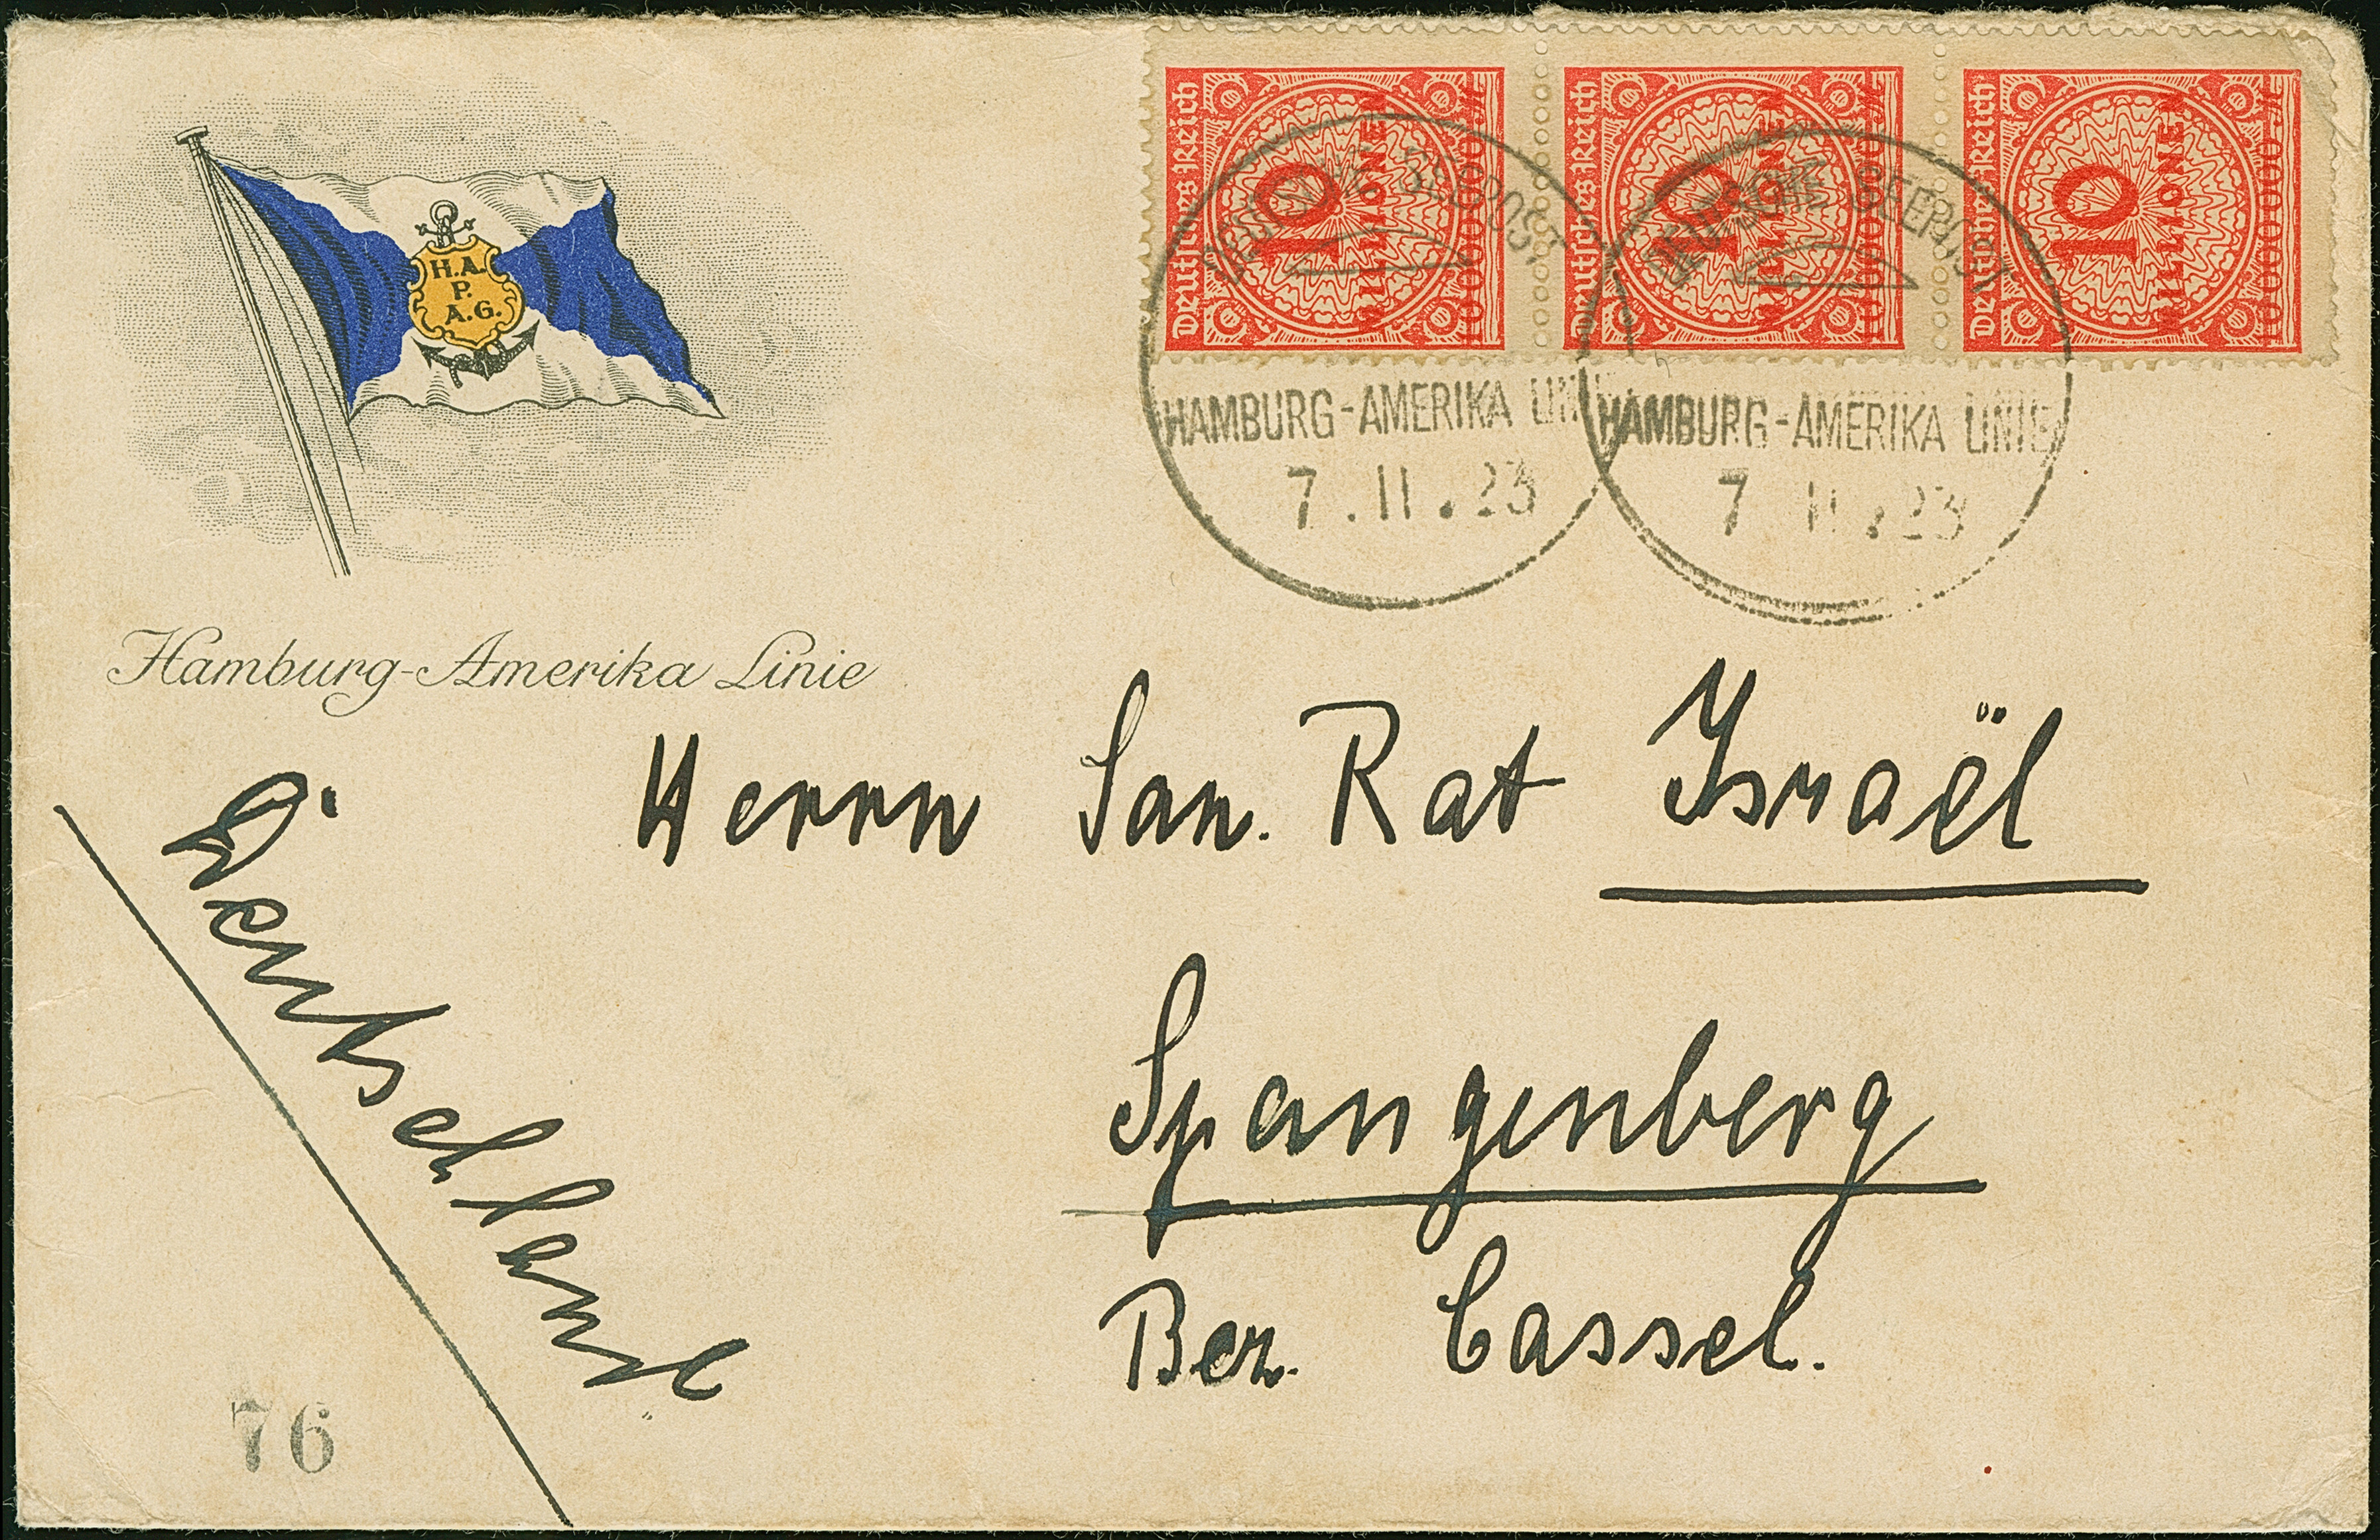 H.A.
P.
A.G.
Hamburg-Amerika Linie
Deutsches Reich 10 MILLIONEN
Deutsches Reich 10 MILLIONEN
Deutsches Reich 10 MILLIONEN
DEUTSCHE SEEPOST
HAMBURG-AMERIKA LINIE
7.11.23
DEUTSCHE SEEPOST
HAMBURG-AMERIKA LINIE
7 11.23
Herrn San. Rat Israël
Spangenberg
Bez. Cassel.
Deutschland
76